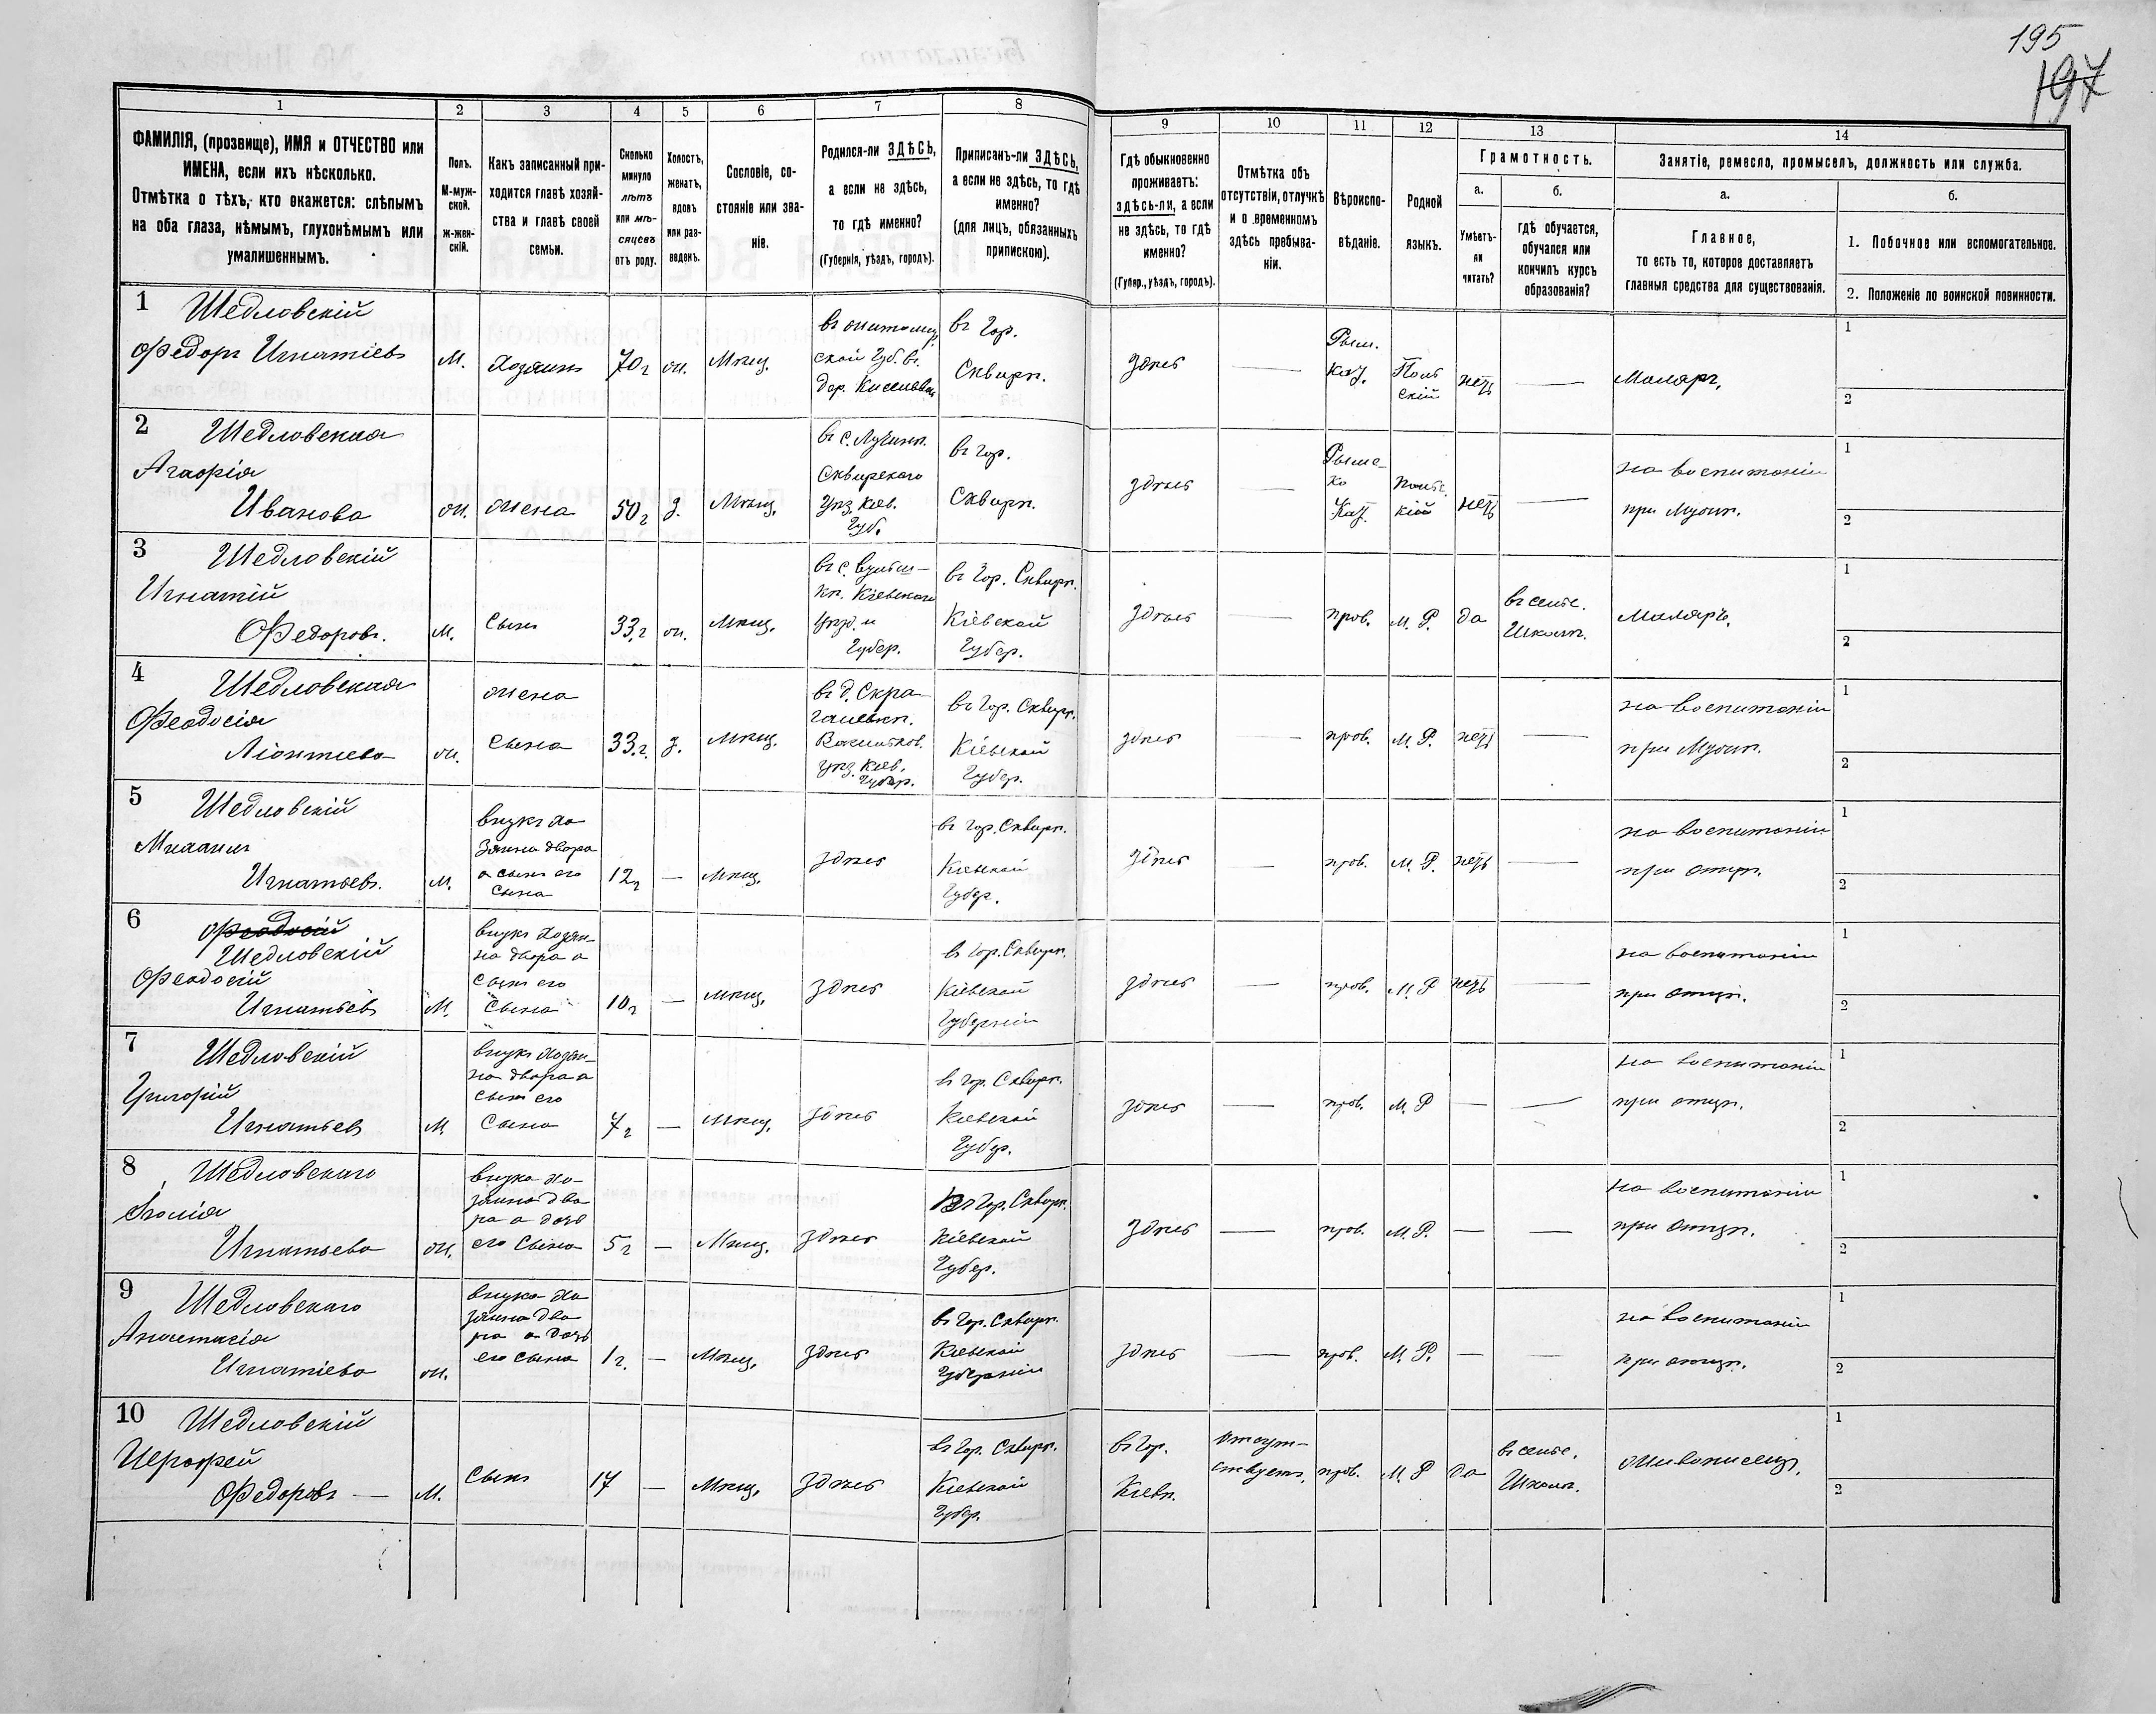 195
197
1
2
3
4
5
6
7
8
9
10
11
12
13
14
ФАМИЛІЯ, (прозвище), ИМЯ и ОТЧЕСТВО или
ИМЕНА, если ихъ нѣсколько.
Отмѣтка о тѣхъ, кто окажется: слѣпымъ
на оба глаза, нѣмымъ, глухонѣмымъ или
умалишеннымъ.
Полъ.
М-муж-
ской.
ж-жен-
скій.
Какъ записанный при-
ходится главѣ хозяй-
ства и главѣ своей
семьи.
Сколько
минуло
лѣтъ
или мѣ-
сяцевъ
отъ роду.
Холостъ,
женатъ,
вдовъ
или раз-
веденъ.
Сословіе, со-
стояніе или зва-
ніе.
Родился-ли ЗДѢСЬ,
а если не здѣсь,
то гдѣ именно?
(Губернія, уѣздъ, городъ).
Приписанъ-ли ЗДѢСЬ,
а если не здѣсь, то гдѣ
именно?
(для лицъ, обязанныхъ
припискою).
Гдѣ обыкновенно
проживаетъ:
здѣсь-ли, а если
не здѣсь, то гдѣ
именно?
(Губер., уѣздъ, городъ).
Отмѣтка объ
отсутствіи, отлучкѣ
и о временномъ
здѣсь пребыва-
ніи.
Вѣроиспо-
вѣданіе.
Родной
языкъ.
Грамотность.
а.
Умѣетъ-
ли
читать?
б.
гдѣ обучается,
обучался или
кончилъ курсъ
образованія?
Занятіе, ремесло, промыселъ, должность или служба.
а.
Главное,
то есть то, которое доставляетъ
главныя средства для существованія.
б.
1. Побочное или вспомогательное.
2. Положеніе по воинской повинности.
1 Шедловскій
Федоръ Игнатіевъ
М.
Хозяинъ
70 г
ж.
Мѣщ.
ской Губ. въ
дер.
въ Гор.
Сквирѣ.
здѣсь
—
Рим.
Кат.
Поль
скій
нетъ
—
Маляръ,
1
2
2 Шедловская
Агафія
Иванова
ж.
жена
50 г
з.
Мѣщ.
въ с.
Сквирскаго
Уѣз. Кіев.
Губ.
въ Гор.
Сквирѣ.
здѣсь
—
Римс-
ко
Кат.
Поль.
кій
нетъ
—
на воспитаніи
при Мужѣ.
1
2
3 Шедловскій
Игнатій
Федоровъ.
М.
Сынъ
33. г
ж.
Мѣщ.
въ с.
Кіевскаго
Уѣзд. и
Губер.
въ Гор. Сквирѣ.
Кіевской
Губер.
здѣсь
—
прав.
М. Р.
да
въ сельс.
Школѣ.
Маляръ.
1
2
4 Шедловская
Феодосія
Ліонтіева
ж.
жена
сына
33. г.
з.
Мѣщ.
въ д. Скра-
галевкѣ.
Васильков.
уѣз. Кіев.
Губер.
въ Гор. Сквирѣ.
Кіевской
Губер.
здѣсь
—
прав.
М. Р.
нетъ
—
на воспитаніи
при Мужѣ.
1
2
5 Шедловскій
Михаилъ
Игнатьевъ.
М.
внукъ хо
зяина двора
а сынъ его
сына
12 г
—
Мѣщ.
здѣсь
въ Гор. Сквирѣ.
Кіевской
Губер.
здѣсь
—
прав.
М. Р.
нетъ
—
на воспитаніи
при отцѣ.
1
2
6 Феодосій
Шедловскій
Феодосій
Игнатьевъ
М.
внукъ хозяи-
на двора а
сынъ его
сына
10 г
—
Мѣщ.
здѣсь
въ Гор. Сквирѣ.
Кіевской
Губерніи
здѣсь
—
прав.
М. Р
нетъ
—
на воспитаніи
при отцѣ.
1
2
7 Шедловскій
Григорій
Игнатьевъ
М.
внукъ хозяи-
на двора а
сынъ его
сына
7 г
—
Мѣщ.
здѣсь
въ Гор. Сквирѣ.
Кіевской
Губер.
здѣсь
—
прав.
М. Р
—
—
на воспитаніи
при отцѣ.
1
2
8 Шедловскаго
Игнатьева
ж.
внука хо-
зяина дво
ра а дочь
его сына
5 г
—
Мѣщ.
здѣсь
въ Гор. Сквирѣ.
Кіевской
Губер.
здѣсь
—
прав.
М. Р.
—
—
на воспитаніи
при отцѣ.
1
2
9 Шедловскаго
Анастасія
Игнатіева
ж.
внука хо
зяина дво
ра а дочь
его сына
1 г.
—
Мѣщ.
здѣсь
въ Гор. Сквирѣ.
Кіевской
Губерніи
здѣсь
—
прав.
М. Р.
—
—
на воспитаніи
при отцѣ.
1
2
10 Шедловскій
Иерофей
Федоровъ —
М.
Сынъ
17
—
Мѣщ.
здѣсь
въ Гор. Сквирѣ.
Кіевской
Губер.
въ Гор.
Кіевѣ.
отсут-
ствуетъ,
прав.
М. Р
да
въ сельс.
Школѣ.
живописецъ.
1
2